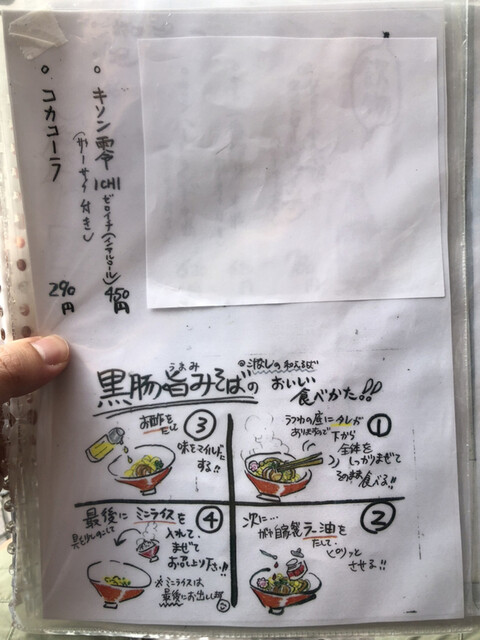 。キリン零ICHI
ゼロイチ(ノンアルコール)
(ザーサイ付き)
450円
。コカコーラ
290円
◎汁なしの和えそば
黒豚旨みそばの
うまみ
おいしい
食べかた!!
①
ラフワの底にタレが
ありますので下から
全体を
しっかりまぜて
そのまま
食べる!!
②
次に…
ラー油を
たして、
ピリッと
させる!!
③
お酢を
たし
味をマイルドに
する!!
④
最後にミニライスを
入れて、
まぜて
お召し上り下さい!!
※ミニライスは
最後にお出しします